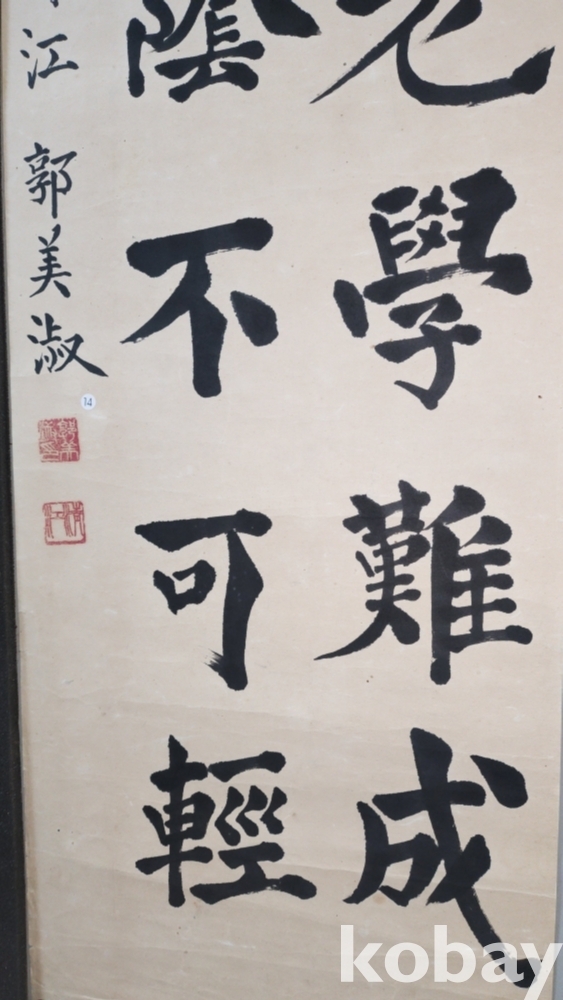 老學難成
陰不可輕
江 郭美淑
14
kobay